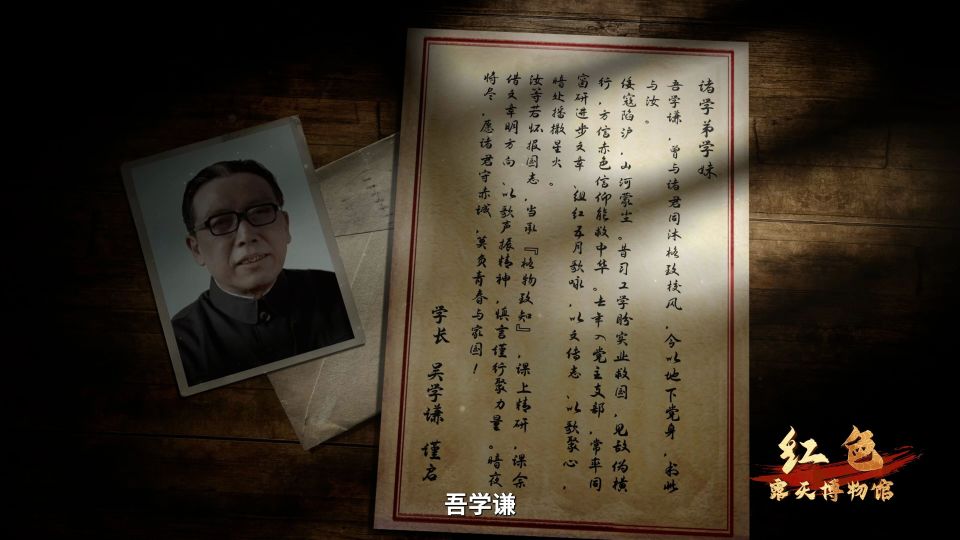 诸学弟学妹
吾学谦，曾与诸君同沐格致校风，今以地下党身，书此
与汝。
倭寇陷沪，山河蒙尘。昔习工学盼实业救国，见敌伪横
行，方信赤色信仰能救中华。去年入党主支部，常率同
窗研进步文章、组红五月歌咏，以文传志、以歌聚心，
暗处播撒星火。
汝等若怀报国志，当承『格物致知』，课上精研，课余
借文章明方向、以歌声振精神，慎言谨行聚力量。暗夜
将尽，愿诸君守赤城，莫负青春与家国！
学长 吴学谦 谨启
吾学谦
红色
露天博物馆